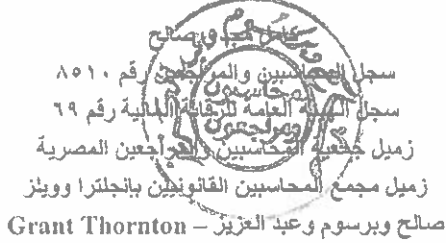 كامل مجدي صالح
سجل المحاسبين والمراجعين رقم ٨٥١٠
سجل الهيئة العامة للرقابة المالية رقم ٦٩
زميل جمعية المحاسبين والمراجعين المصرية
زميل مجمع المحاسبين القانونيين بإنجلترا وويلز
صالح وبرسوم وعبد العزيز – Grant Thornton
محاسبون
ومراجعون